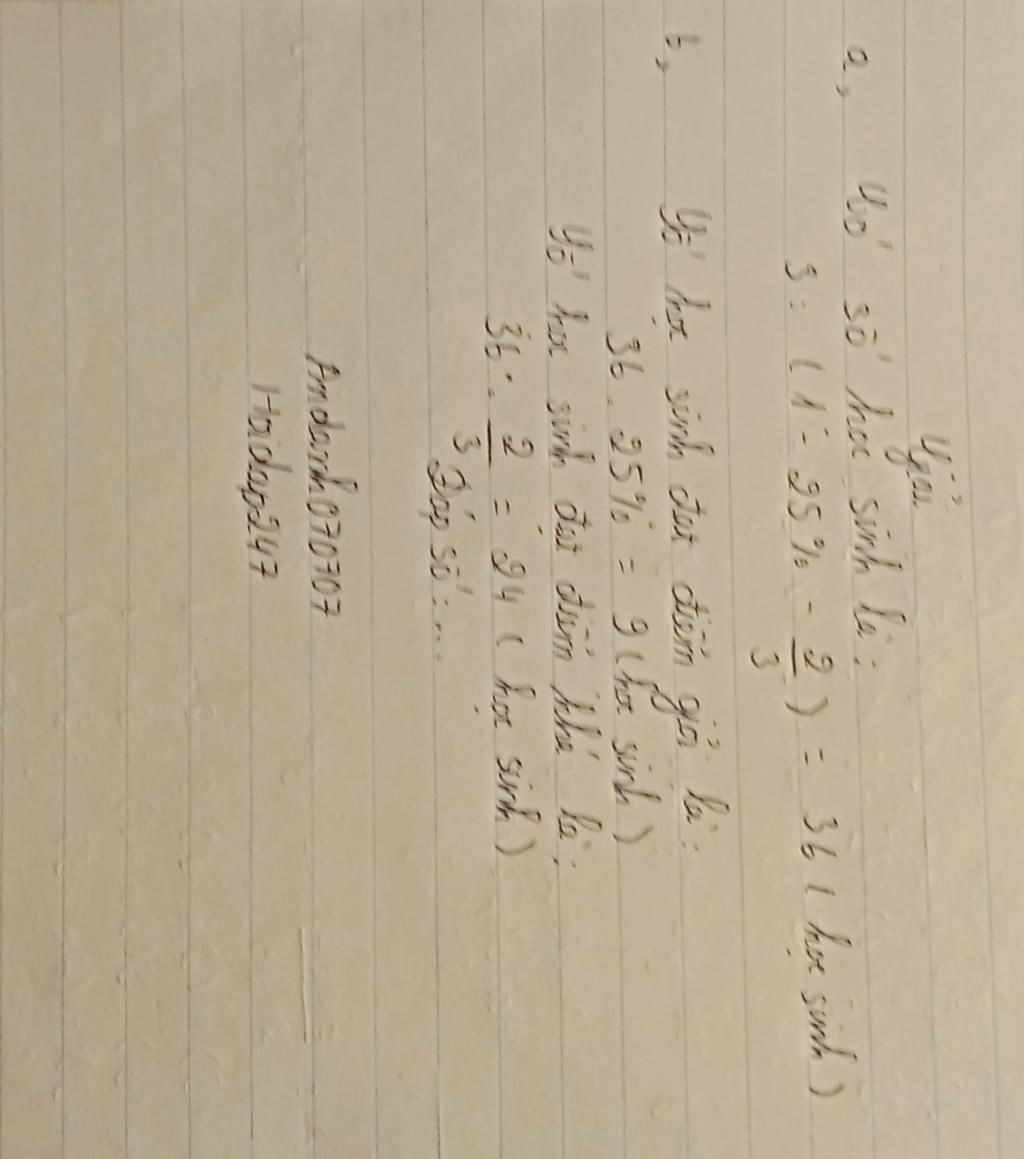 Giải
a, Số học sinh là:
3 : ( 1 - 25% - 2/3 ) = 36 ( học sinh )
b, Số học sinh đạt điểm giỏi là:
36 . 25% = 9 ( học sinh )
Số học sinh đạt điểm khá là:
36 . 2/3 = 24 ( học sinh )
Đáp số : ...
Andanh070707
Hoidap247